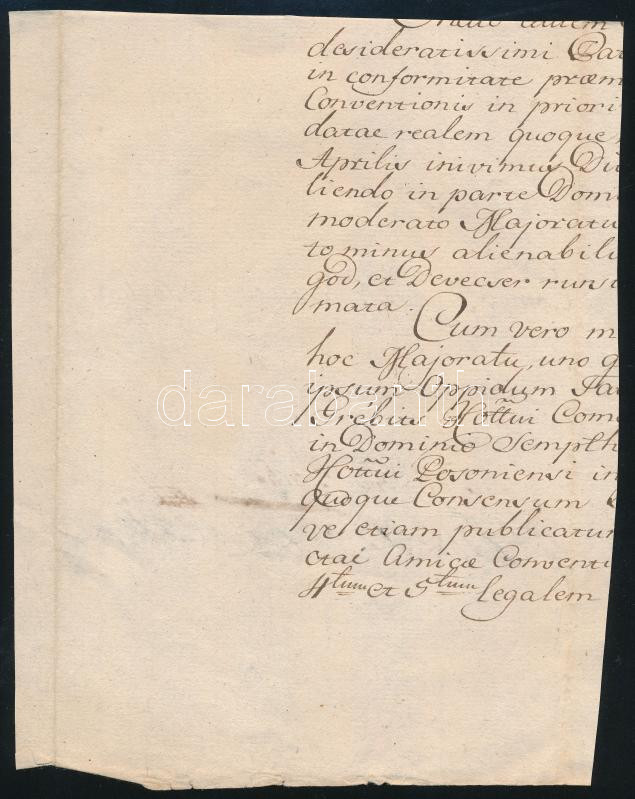 desideratissimi Pat
in conformitate præm
Conventionis in priori
datae realem quoque
Aprilis inivimus Div
liendo in parte Domi
moderato Majoratu
to minus alienabili
god, et Devecser rursu
mata.
Cum vero m
hoc Majoratu, uno q
ypsum Oppidum
in Dominio Sempth
Posoniensi in
quoque Consensum
ve etiam publicatur
ctae Amicæ Conventi
4tum et 5tum Legalem
darabanth